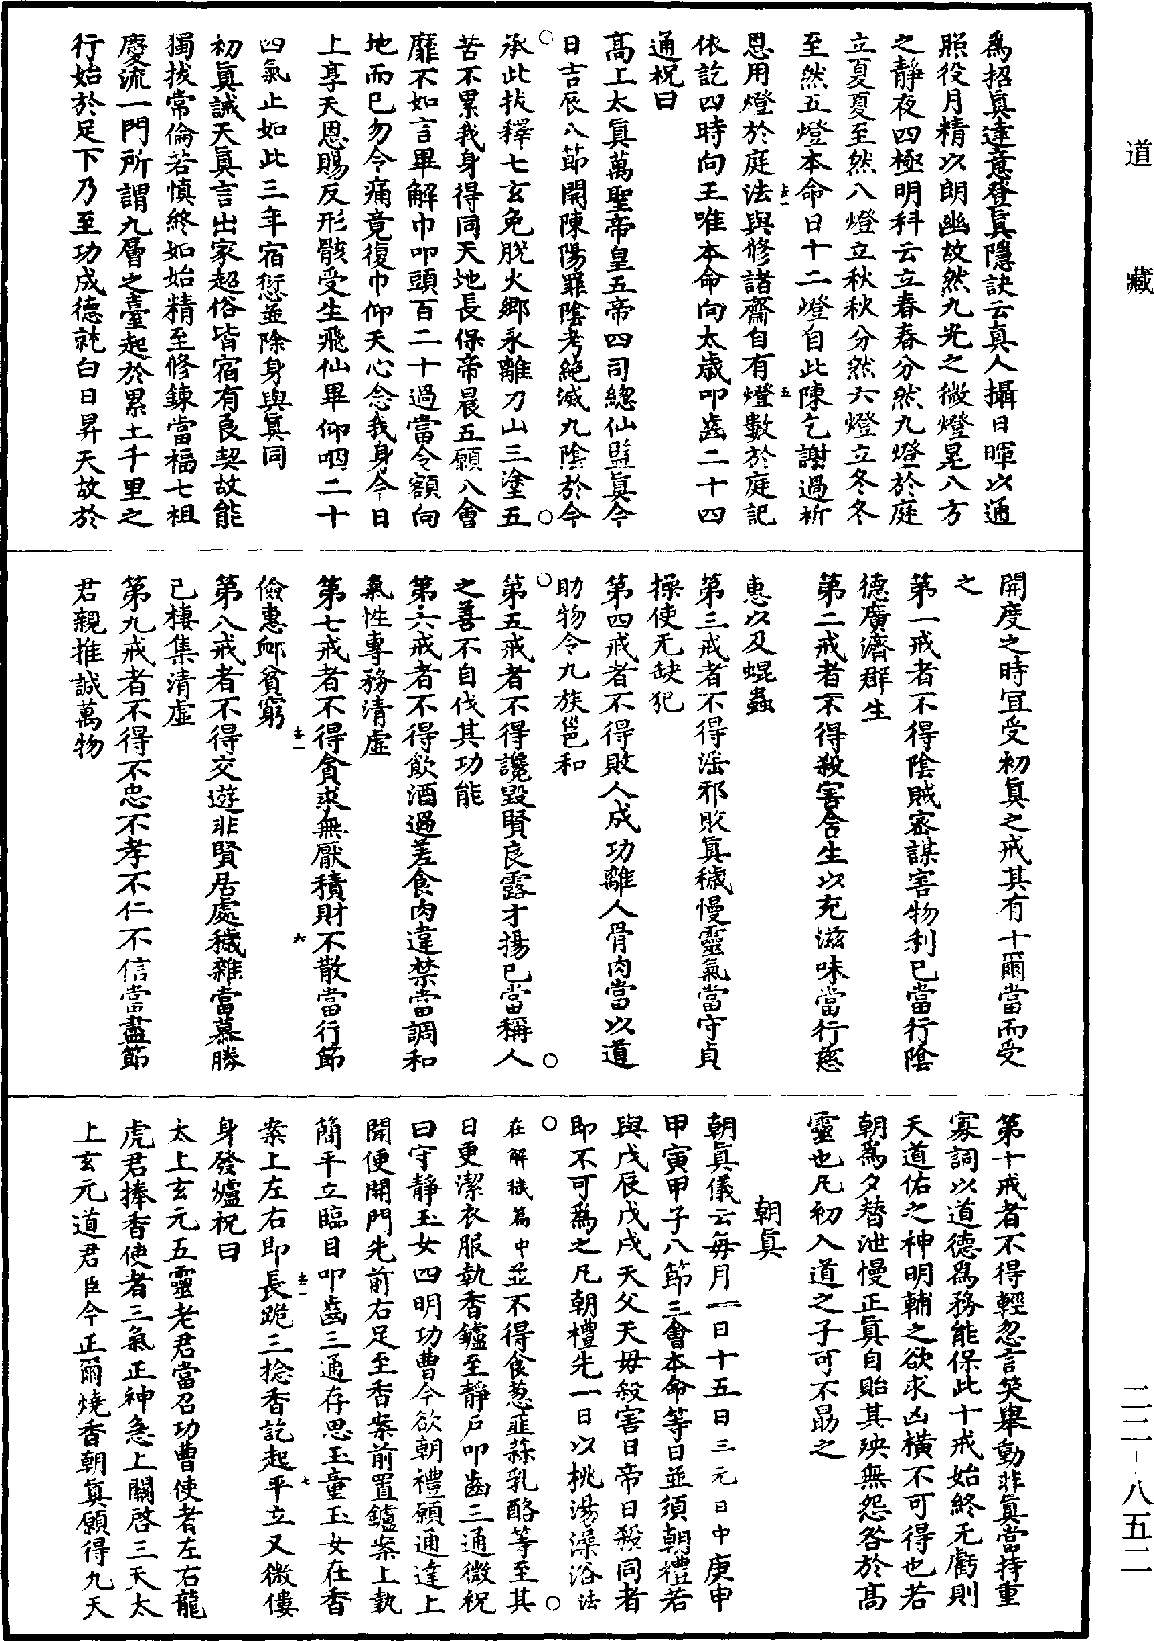 道藏
二二-八五二
為招真達意登真隱訣云真人攝日暉以通
照役月精以朗幽故然九光之微燈晃八方
之靜夜四極明科云立春春分然九燈於庭
立夏夏至然八燈立秋秋分然六燈立冬冬
至然五燈本命日十二燈自此陳乞謝過祈
恩用燈於庭法與修諸齋自有燈數於庭記
依訖四時向王唯本命向太歲叩齒二十四
通祝曰
高上太真萬聖帝皇五帝四司總仙監真今
日吉辰八節開陳陽罪陰考絕滅九陰於今
承此拔釋七玄免脫火鄉永離刀山三塗五
苦不累我身得同天地長保帝晨五願八會
靡不如言畢解巾叩頭百二十過當令額向
地而已勿令痛竟復巾仰天心念我身今日
上享天恩賜反形骸受生飛仙畢仰咽二十
四氣止如此三年宿愆並除身與真同
初真誡天真言出家超俗皆宿有良契故能
獨拔常倫若慎終如始精至修鍊當福七祖
慶流一門所謂九層之臺起於累土千里之
行始於足下乃至功成德就白日昇天故於
開度之時宜受初真之戒其有十爾當而受
之
第一戒者不得陰賊密謀害物利己當行陰
德廣濟群生
第二戒者不得殺害含生以充滋味當行慈
惠以及蜫蟲
第三戒者不得淫邪敗真穢慢靈氣當守貞
操使无缺犯
第四戒者不得敗人成功離人骨肉當以道
助物令九族邕和
第五戒者不得讒毀賢良露才揚己當稱人
之善不自伐其功能
第六戒者不得飲酒過差食肉違禁當調和
氣性專務清虛
第七戒者不得貪求無厭積財不散當行節
儉惠卹貧窮
第八戒者不得交遊非賢居處穢雜當慕勝
己棲集清虛
第九戒者不得不忠不孝不仁不信當盡節
君親推誠萬物
第十戒者不得輕忽言笑舉動非真當持重
寡詞以道德為務能保此十戒始終无虧則
天道佑之神明輔之欲求凶橫不可得也若
朝為夕替泄慢正真自貽其殃無怨咎於高
靈也凡初入道之子可不勗之
朝真
朝真儀云每月一日十五日三元日中庚申
甲寅甲子八節三會本命等日並須朝禮若
與戊辰戊戌天父天母殺害日帝日殺同者
即不可為之凡朝禮先一日以桃湯澡浴法
在解穢篇中並不得食葱韭蒜乳酪等至其
日更潔衣服執香鑪至靜戶叩齒三通微祝
曰守靜玉女四明功曹今欲朝禮願通達上
聞便開門先前右足至香案前置鑪案上執
簡平立臨目叩齒三通存思玉童玉女在香
案上左右即長跪三捻香訖起平立又微僂
身發爐祝曰
太上玄元五靈老君當召功曹使者左右龍
虎君捧香使者三氣正神急上關啓三天太
上玄元道君臣今正爾燒香朝真願得九天